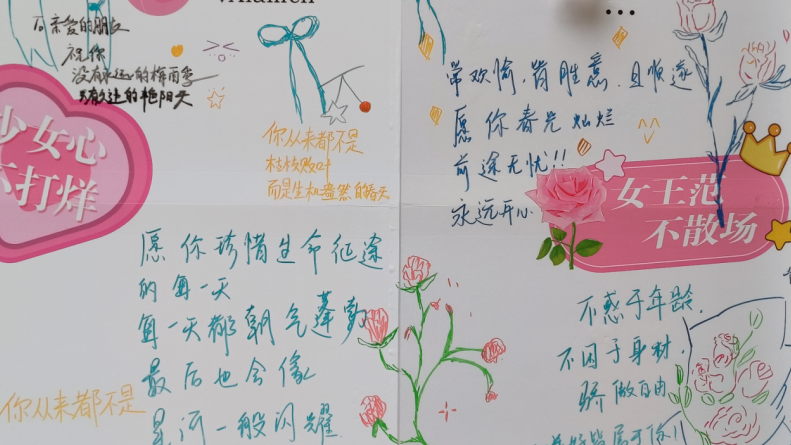 可亲爱的朋友
祝你
没有永远的梅雨季
只有久违的艳阳天
少女心
不打烊
你从来都不是
枯枝败叶
而是生机盎然的春天
愿你珍惜生命征途
的每一天
每一天都朝气蓬勃
最后也会像
星河一般闪耀
你从来都不是
...
常欢愉,皆胜意,且顺遂
愿你春光灿烂
前途无忧!!
永远开心
女王范
不散场
不惑于年龄,
不困于身材,
骄傲自由